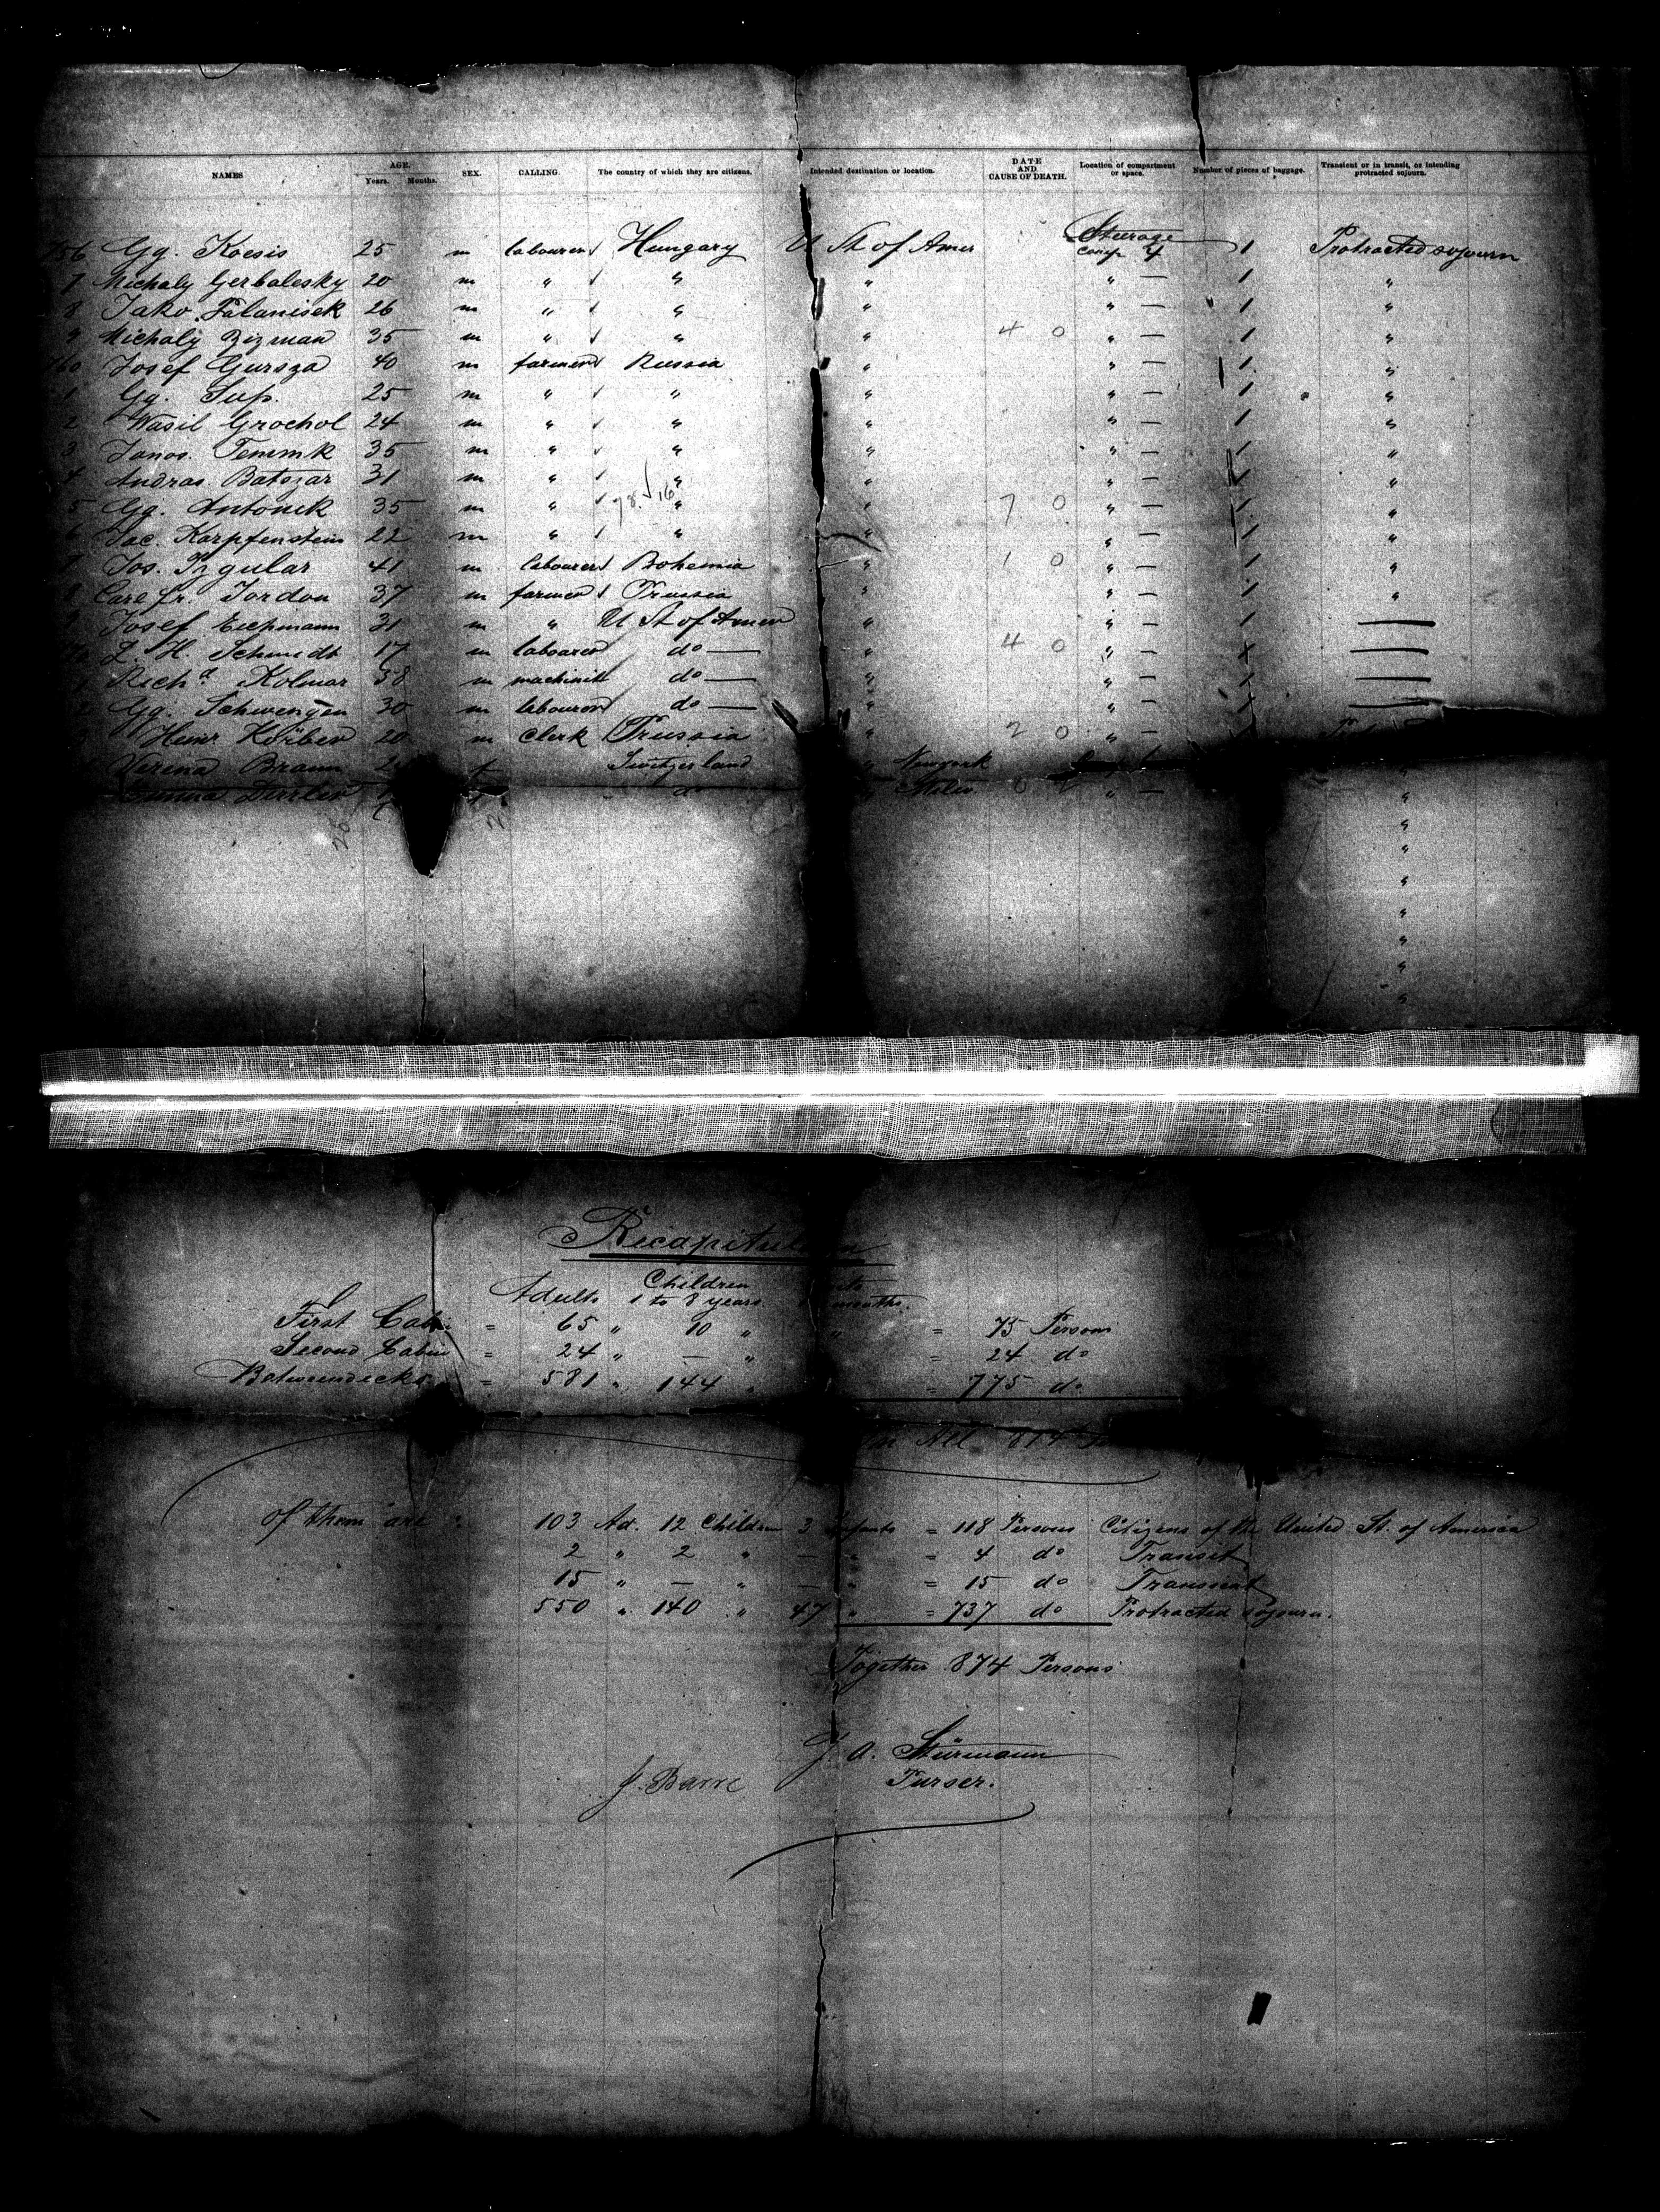 NAMES AGE. Years. Months. SEX. CALLING. The country of which they are citizens. Intended destination or location. DATE AND CAUSE OF DEATH. Location of compartment or space. Number of pieces of baggage. Transient or in transit, or intending protracted sojourn.
756 Gg. Kocsis 25 m labourer Hungary U St of Amer Steerage comp 4 1 Protracted sojourn
7 Michaly Gerbalesky 20 m " " " " — 1 "
8 Jako Palanisek 26 m " " " " — 1 "
9 Michaly Zizman 35 m " " " 4 0 " — 1 "
760 Josef Gursza 40 m farmer Russia " " — 1 "
1 Gg. Sup. 25 m " " " " — 1 "
2 Wasil Grochol 24 m " " " " — 1 "
3 Janos Temmk 35 m " " " " — 1 "
4 Andras Batszar 31 m " " " " — 1 "
5 Gg. Antonik 35 m " 78 16 " " 7 0 " — 1 "
6 Jac. Karpfenstein 22 m " " " " — 1 "
7 Jos. Pzgular 41 m labourer Bohemia " 1 0 " — 1 "
8 Carl fr. Jordon 37 m farmer Prussia " " — 1 "
9 Josef Eichmann 31 m " U St of Amer " " — 1 —
J. H. Schmidt 17 m labourer do — " 4 0 " — 1 —
1 Richd Kolmar 38 m machinist do — " " — 1 —
2 Gg. Schwengen 30 m labourer do — " " — 1 —
3 Heinr Körber 20 m Clerk Prussia " 2 0 " —
Verena Braun f Switzerland " Newyork
do " —
Recapitulation
Adults Children 1 to 8 years months.
First Cabin = 65 " 10 " " = 75 Persons
Second Cabin = 24 " — " = 24 do
Betweendecks = 581 " 144 " = 775 do
In All 874
of them are : 103 Ad. 12 Children 3 Infants = 118 Persons Citizens of the United St. of America
2 " 2 " — " = 4 do Transit
15 " — " — " = 15 do Transient
550 " 140 " 47 " = 737 do Protracted sojourn.
Together 874 Persons
J. A. Stürmann
J. Barre Purser.